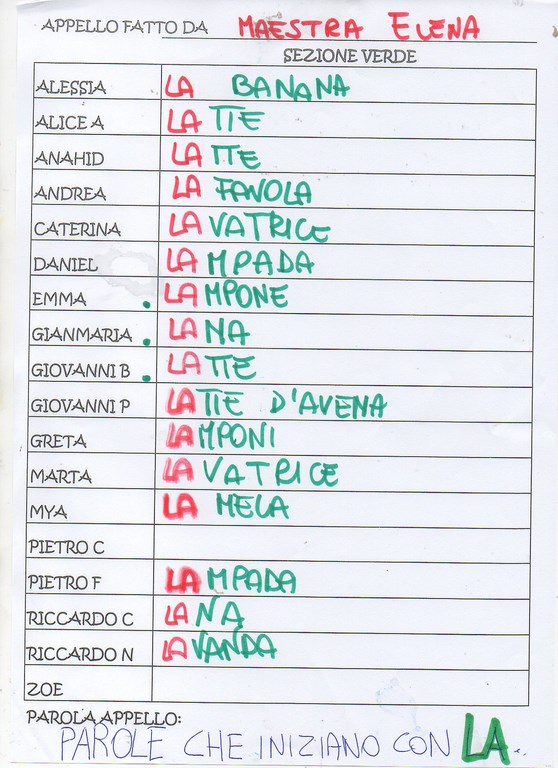 APPELLO FATTO DA MAESTRA ELENA
SEZIONE VERDE
ALESSIA LA BANANA
ALICE A LATTE
ANAHID LATTE
ANDREA LA FAVOLA
CATERINA LAVATRICE
DANIEL LAMPADA
EMMA . LAMPONE
GIANMARIA . LANA
GIOVANNI B . LATTE
GIOVANNI P LATTE D'AVENA
GRETA LAMPONI
MARTA LAVATRICE
MYA LA MELA
PIETRO C
PIETRO F LAMPADA
RICCARDO C LANA
RICCARDO N LAVANDA
ZOE
PAROLA APPELLO:
PAROLE CHE INIZIANO CON LA..